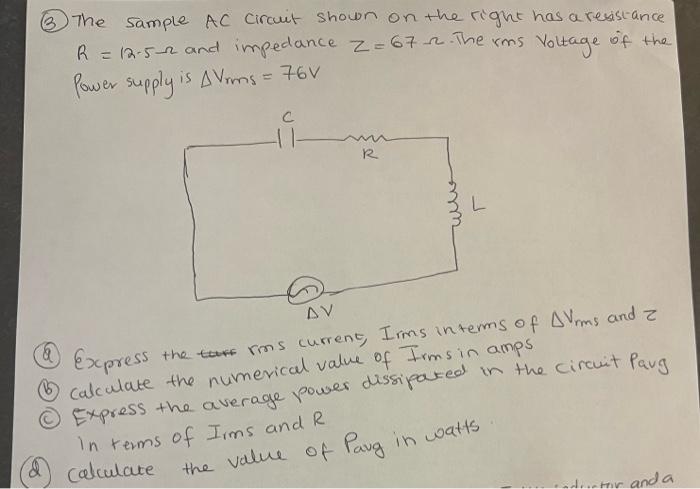 ③ The sample AC circuit shown on the right has a resistance
R = 12.5 Ω and impedance Z = 67 Ω. The rms Voltage of the
Power supply is ΔVrms = 76V
C
R
L
ΔV
ⓐ Express the rms current, Irms in terms of ΔVrms and Z
ⓑ calculate the numerical value of Irms in amps
ⓒ Express the average power dissipated in the circuit Pavg
in terms of Irms and R
ⓓ calculate the value of Pavg in watts.
and a